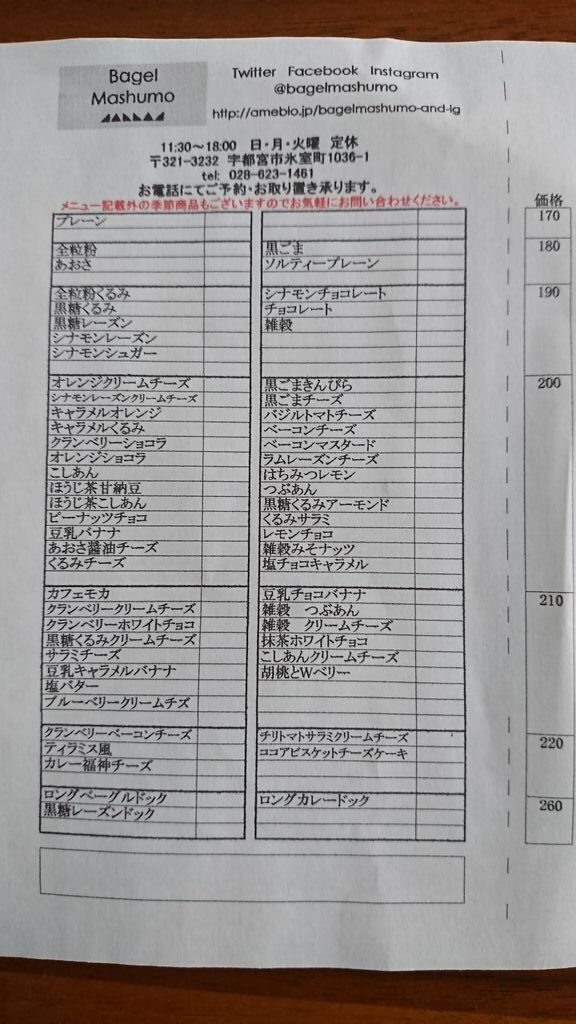 Bagel
Mashumo
Twitter Facebook Instagram
@bagelmashumo
http://ameblo.jp/bagelmashumo-and-lg
11:30～18:00 日・月・火曜 定休
〒321-3232 宇都宮市氷室町1036-1
tel: 028-623-1461
お電話にてご予約・お取り置き承ります。
メニュー記載外の季節商品もございますのでお気軽にお問い合わせください。
価格
プレーン 170
全粒粉 黒ごま 180
あおさ ソルティープレーン
全粒粉くるみ シナモンチョコレート 190
黒糖くるみ チョコレート
黒糖レーズン 雑穀
シナモンレーズン
シナモンシュガー
オレンジクリームチーズ 黒ごまきんぴら 200
シナモンレーズンクリームチーズ 黒ごまチーズ
キャラメルオレンジ バジルトマトチーズ
キャラメルくるみ ベーコンチーズ
クランベリーショコラ ベーコンマスタード
オレンジショコラ ラムレーズンチーズ
こしあん はちみつレモン
ほうじ茶甘納豆 つぶあん
ほうじ茶こしあん 黒糖くるみアーモンド
ピーナッツチョコ くるみサラミ
豆乳バナナ レモンチョコ
あおさ醤油チーズ 雑穀みそナッツ
くるみチーズ 塩チョコキャラメル
カフェモカ 豆乳チョコバナナ 210
クランベリークリームチーズ 雑穀 つぶあん
クランベリーホワイトチョコ 雑穀 クリームチーズ
黒糖くるみクリームチーズ 抹茶ホワイトチョコ
サラミチーズ こしあんクリームチーズ
豆乳キャラメルバナナ 胡桃とWベリー
塩バター
ブルーベリークリームチズ
クランベリーベーコンチーズ チリトマトサラミクリームチーズ 220
ティラミス風 ココアビスケットチーズケーキ
カレー福神チーズ
ロングベーグルドック ロングカレードック 260
黒糖レーズンドック